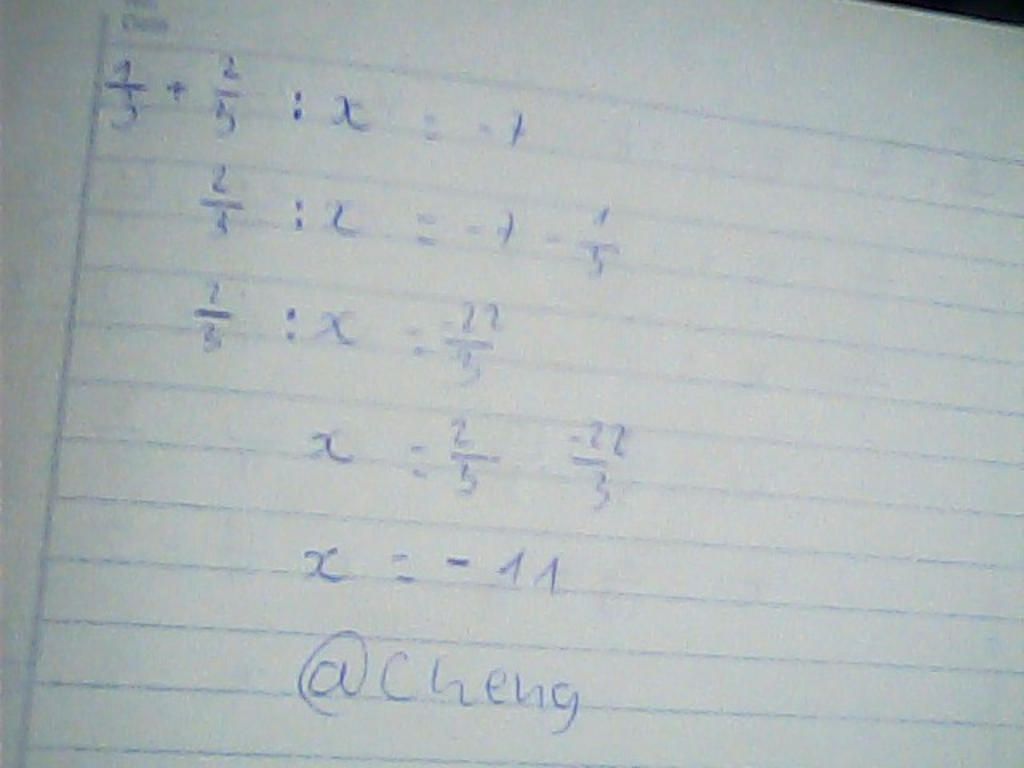 1/3 + 2/5 : x = -7
2/3 : x = -7 - 1/3
2/3 : x = -22/3
x = 2/3 -22/3
x = -11
@Cheng